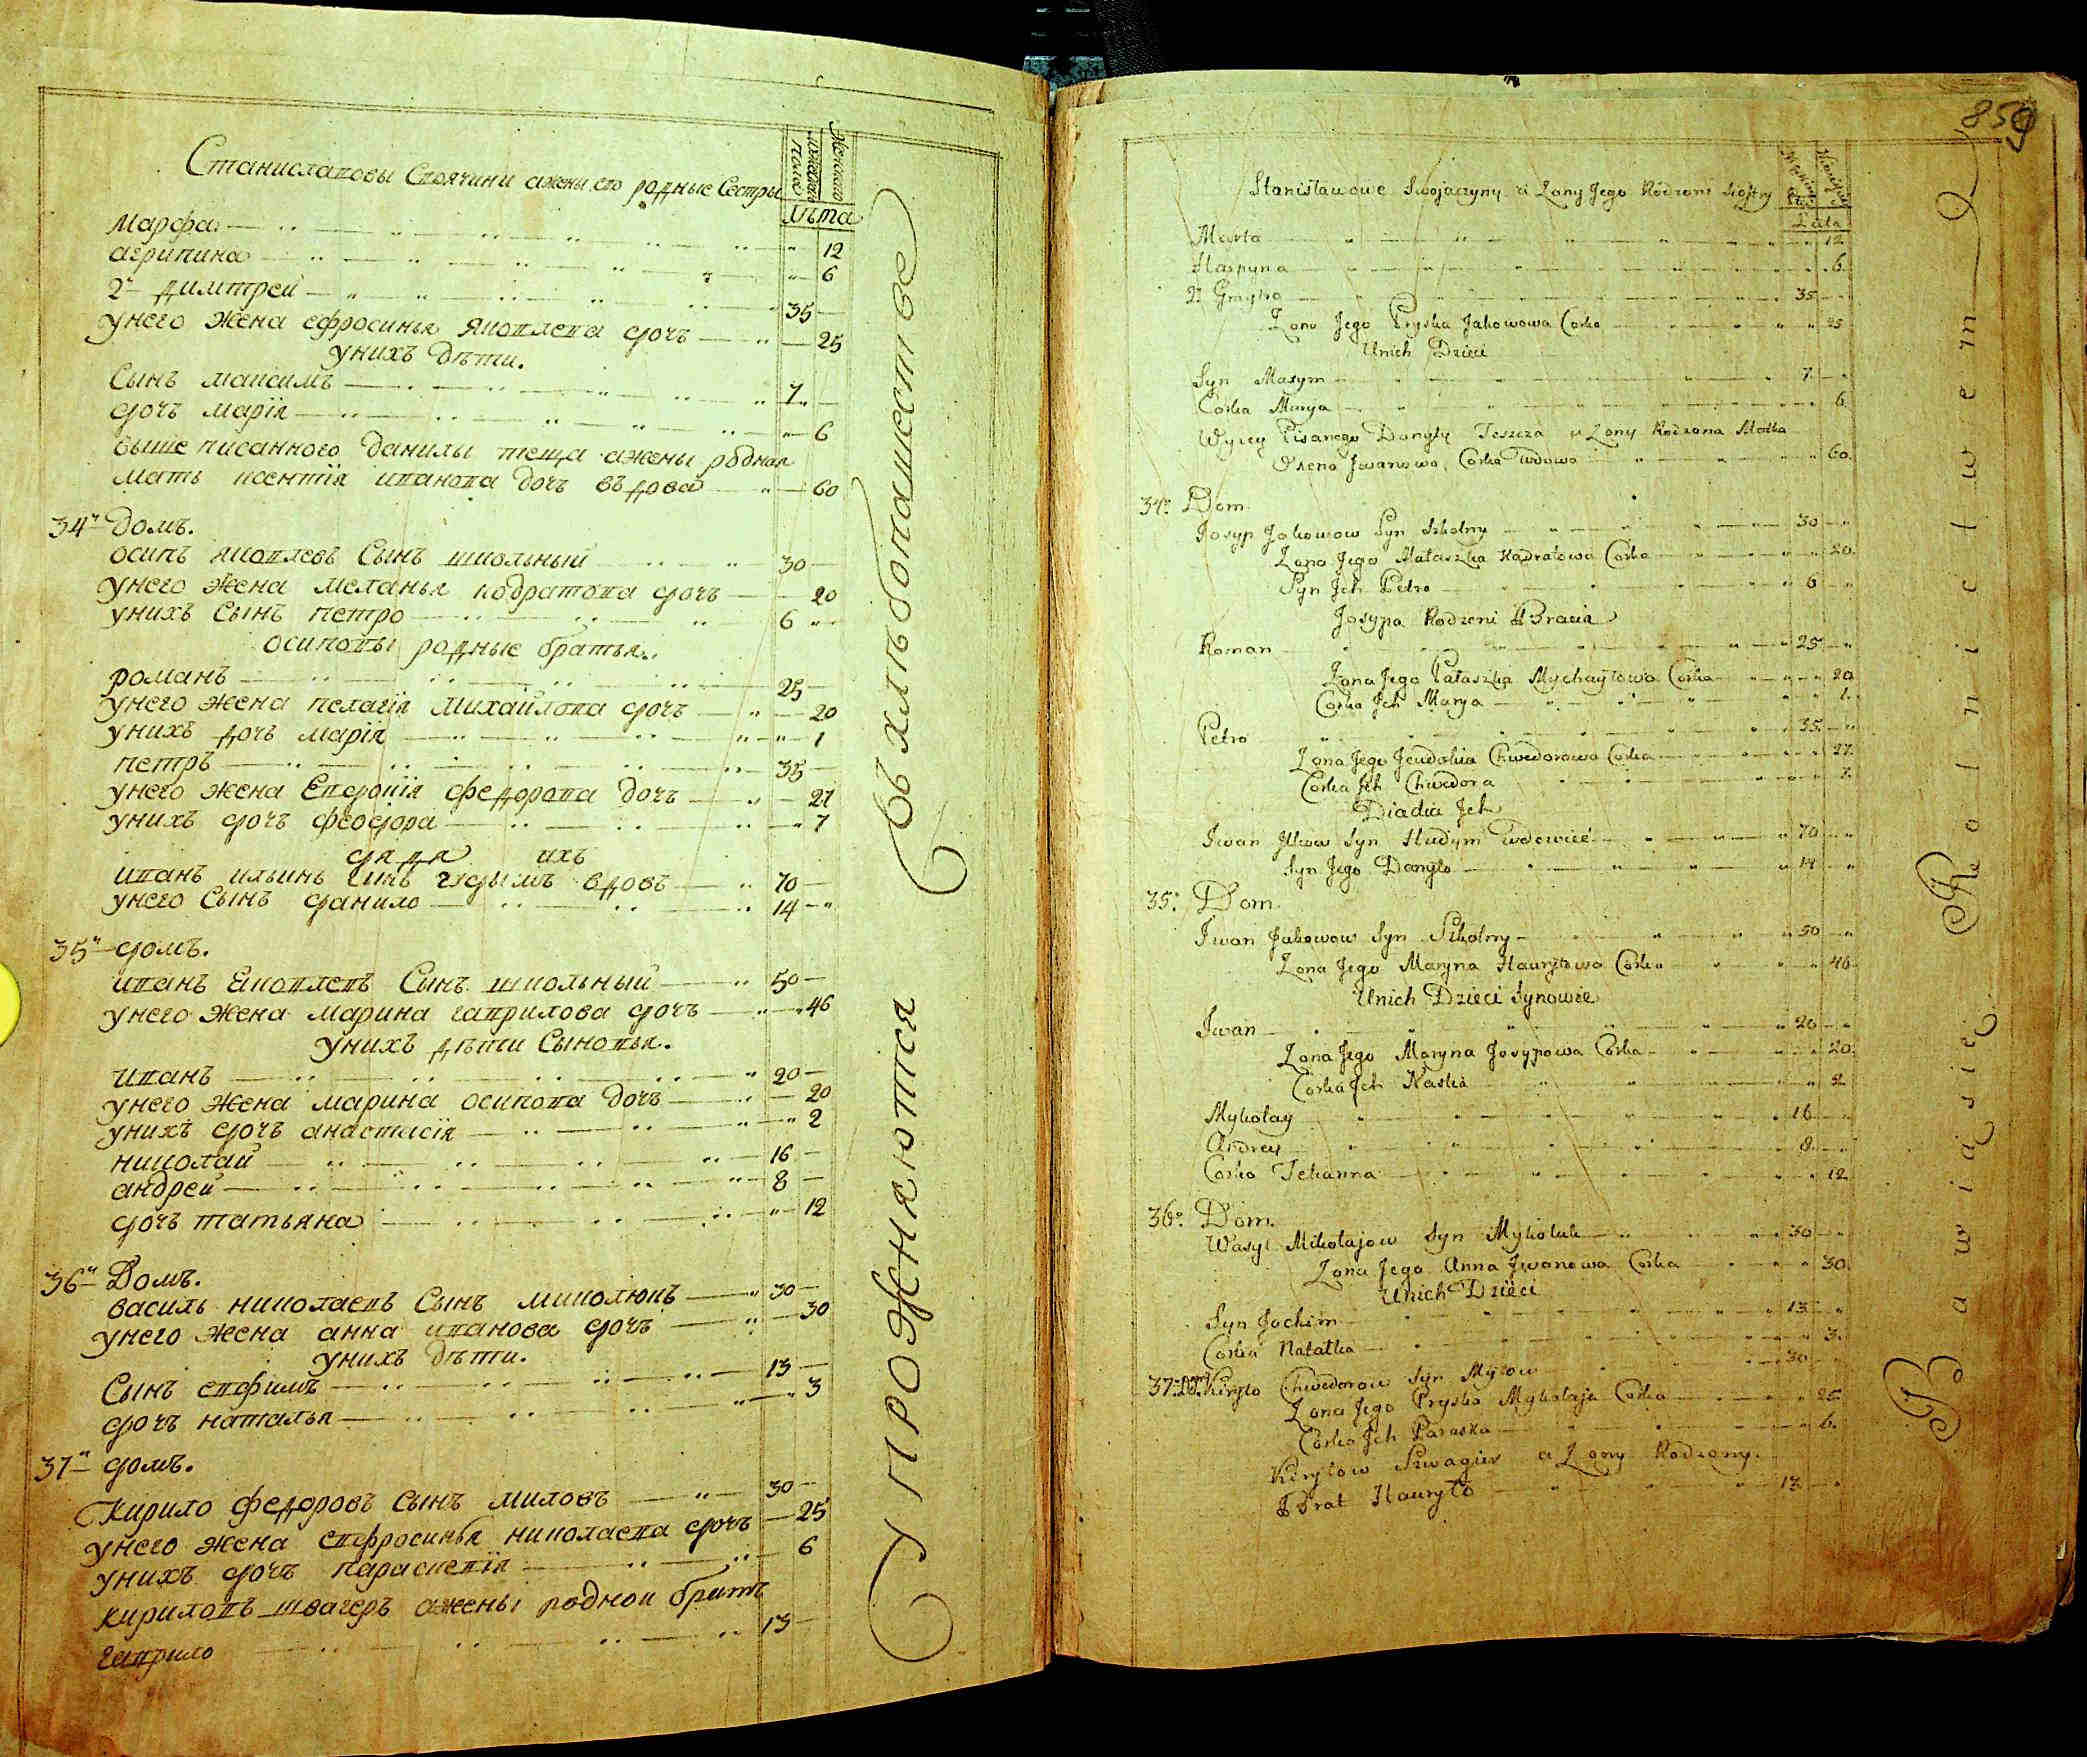 Станиславовы Своячини ажены его родные Сестры
мужеска полов
Женскаго
Лѣта
Марфа 12
агрипина 6
2й димитрей 35
унего жена ефросинья яковлева дочь 25
унихъ дѣти.
Сынъ максимъ 7
дочь марїя 6
выше писанного данилы теща ажены родная
мать ксентїя иванова дочь вѣдова 60
34й домъ.
осипъ яковлевъ Сынъ школьный 30
унего жена меланья кодратова дочь 20
унихъ Сынъ петро 6
осиповы родные братья.
романъ 25
унего жена пелагїя михайлова дочь 20
унихъ дочь марїя 1
петръ 35
унего жена Евдокїя федорова дочь 27
унихъ дочь феодора 7
дядя ихъ
иванъ ильинъ Синъ гудымъ вдовъ 70
унего Сынъ данило 14
35й домъ.
иванъ Яковлевъ Сынъ школьный 50
унего жена марина гаврилова дочь 46
унихъ дѣти Сыновья.
иванъ 20
унего жена марина осипова дочь 20
унихъ дочь анастасїя 2
николай 16
андрей 8
дочь татьяна 12
36й Домъ.
василь николаевъ Сынъ миколюкъ 30
унего жена анна иванова дочь 30
унихъ дѣти.
Сынъ евфимъ 13
дочь наталья 3
37й домъ.
Кирило федоровъ Сынъ миловъ 30
унего жена евфросинья николаева дочь 25
унихъ дочь параскевїя 6
кириловъ швагеръ ажены родной братъ
гаврило 13
Упрожняются Вхлѣбопашествѣ
859
Stanisławowe Swojaczyny a Zony Jego Rodzone Siostry
Lata
Marta 12
Harpyna 6
2. Gmytro 35
Zona Jego Pryska Jakowowa Corka 25
Unich Dzieci
Syn Maxym 7
Corka Marya 6
Wyżey Pisanego Danyły Teszcza a Zony Rodzona Matka
Oxena Jwanowa Corka Wdowa 60
34. Dom.
Josyp Jakowow Syn Szkolny 30
Zona Jego Małaszka Kądratowa Corka 20
Syn Jch Petro 6
Josypa Rodzeni Bracia
Roman 25
Zona Jego Pałaszka Mychayłowa Corka 20
Corka Jch Marya 1
Petro 35
Zona Jego Jewdokia Chwedorowa Corka 27
Corka Jch Chwedora 7
Diadia Jch
Jwan Jlkow Syn Hudym Wdowiec 70
Syn Jego Danyło 14
35. Dom.
Jwan Jakowow Syn Szkolny 50
Zona Jego Maryna Hauryłowa Corka 46
Unich Dzieci Synowie
Jwan 20
Zona Jego Maryna Josypowa Corka 20
Corka Jch Nastia 2
Mykołay 16
Andrey 8
Corka Tekianna 12
36. Dom.
Wasyl Mikołajow Syn Mykoluk 30
Zona Jego Anna Jwanowa Corka 30
Unich Dzieci
Syn Jochim 13
Corka Natałka 3
37. Dom. Kiryło Chwedorow Syn Myłow 30
Zona Jego Pryska Mykołaja Corka 25
Corka Jch Paraska 6
Kiryłow Szwagier a Zony Rodzony
Brat Hauryło 13
Bawią się Rolnictwem